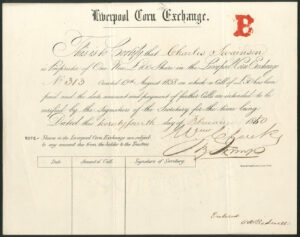 Liverpool Corn Exchange.
B
This is to Certify that Charles
is Proprietor of One New Share in the Liverpool Corn Exchange
No 313 Created August 1853 on which a Call of has been
paid and the date amount and payment of further Calls are intended to be
verified by the Signature of the Secretary for the time being
Dated this twenty fourth day of February 1860
NOTE - Shares in the Liverpool Corn Exchange are subject
to any amount due from the holder to the Trustees
Date. Amount of Calls. Signature of Secretary.
Entered